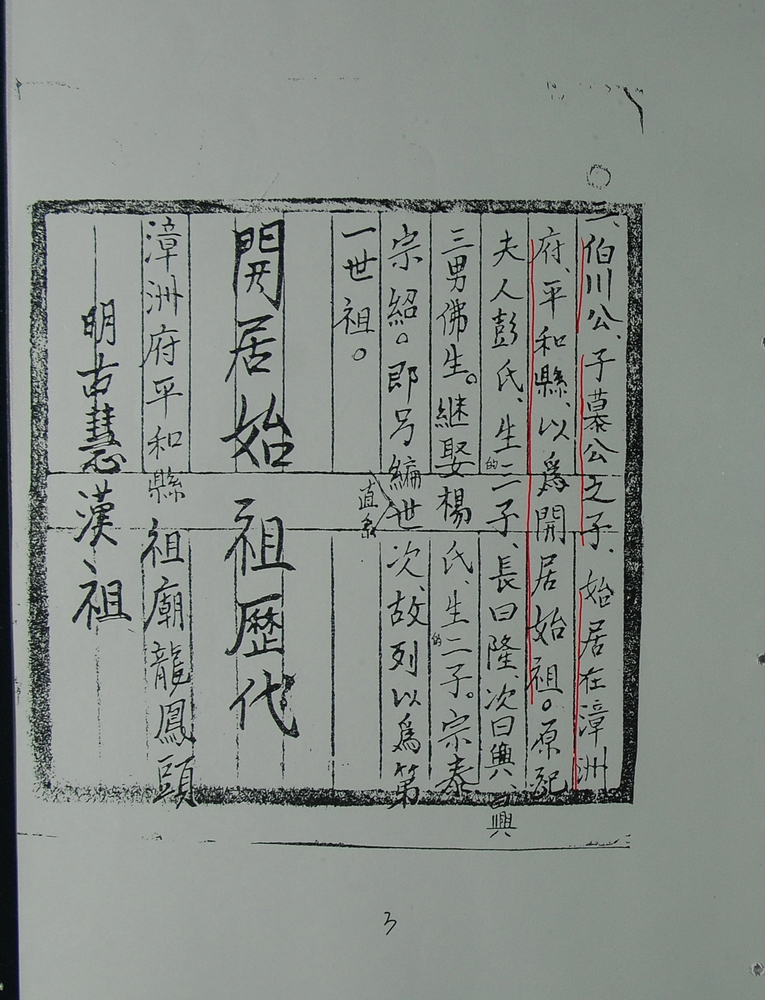 三、伯川公、子慕公之子、始居在漳洲
府、平和縣、以爲開居始祖。原配
夫人彭氏、生二子、長曰隆、次曰興、
的
曰興
三男佛生。継娶楊氏、生二子。宗泰
的
宗紹。即号編世次、故列以爲第
直系
一世祖。
開居始祖歷代
漳洲府平和縣祖廟龍鳳頭
明古慧漢祖
3